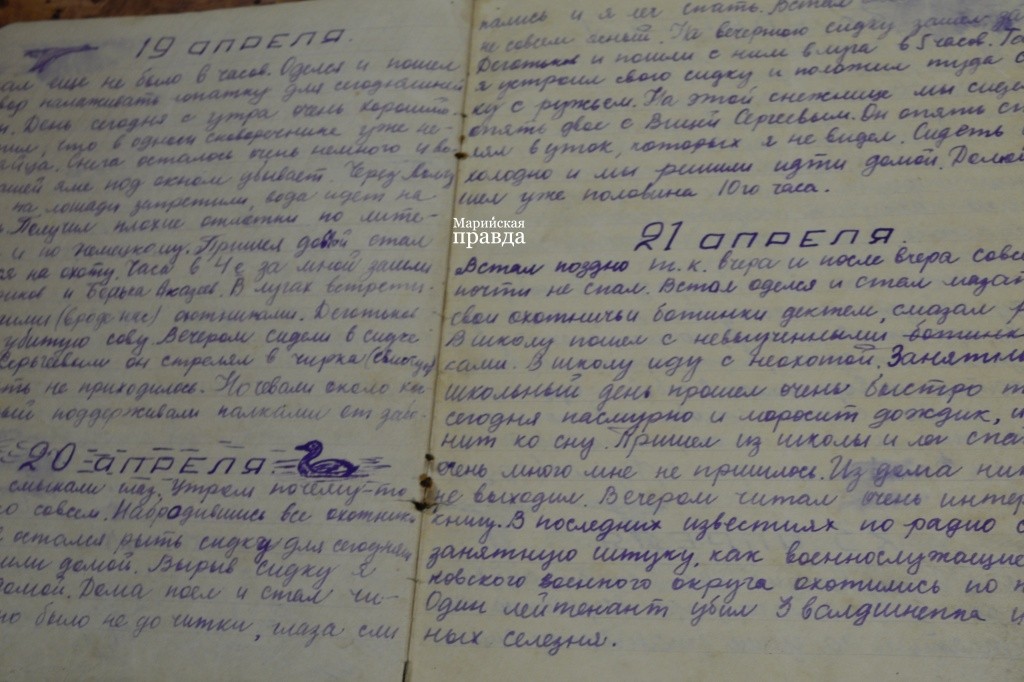 19 апреля.
ал еще не было 8 часов. Оделся и пошел
вор налаживать лопатку для сегодняшней
и. День сегодня с утра очень хороший
что в одном скворечнике уже не-
яйца. Снега осталось очень немного и во-
ашей яме под окном убывает. Через Волгу
на лошади запретили, вода идет на
Получил плохие отметки по лите-
и по немецкому. Пришел домой, стал
ся на охоту. Часа в 4 за мной зашли
и Борька Акацев. В лугах встрети-
ими (вроде нас) охотниками. Деготьков
убитую сову. Вечером сидели в сидке
Сергеевым он стрелял в чирка (свистун)
ть не приходилось. Ночевали около ко-
ый поддерживали палками от забо-
20 апреля
смыкали глаз. Утром почему-то
о совсем. Набродившись все охотники
Я остался рыть сидку для сегодняш
или домой. Вырыв сидку я
домой. Дома поел и стал чи-
но было не до читки, глаза сли
пались и я лег спать. Встал
не совсем ясный. На вечернюю сидку зашел за
Деготьков и пошли с ним в луга в 5 часов. Та
я устроил свою сидку и положил туда с
ку с ружьем. На этой снежнице мы сиде
опять двое с Витей Сергеевым. Он опять ст
лял в уток, которых я не видел. Сидеть
холодно и мы решили идти домой. Домой
шел уже половина 10го часа.
Марийская
правда
21 апреля.
Встал поздно т.к. вчера и после вчера совсе
почти не спал. Встал оделся и стал мазат
свои охотничьи ботинки дектем, смазал р
В школу пошел с невыученными ботинк
сами. В школу иду с неохотой. Занятия
школьный день прошел очень быстро т
сегодня пасмурно и моросит дождик, и
нит ко сну. Пришел из школы и лег спа
очень много мне не пришлось. Из дома ник
не выходил. Вечером читал очень интер
книгу. В последних известиях по радио с
занятную штуку, как военнослужащие
ковского военного округа охотились по п
Один лейтенант убил 3 валдшнеппа и
ных селезня.